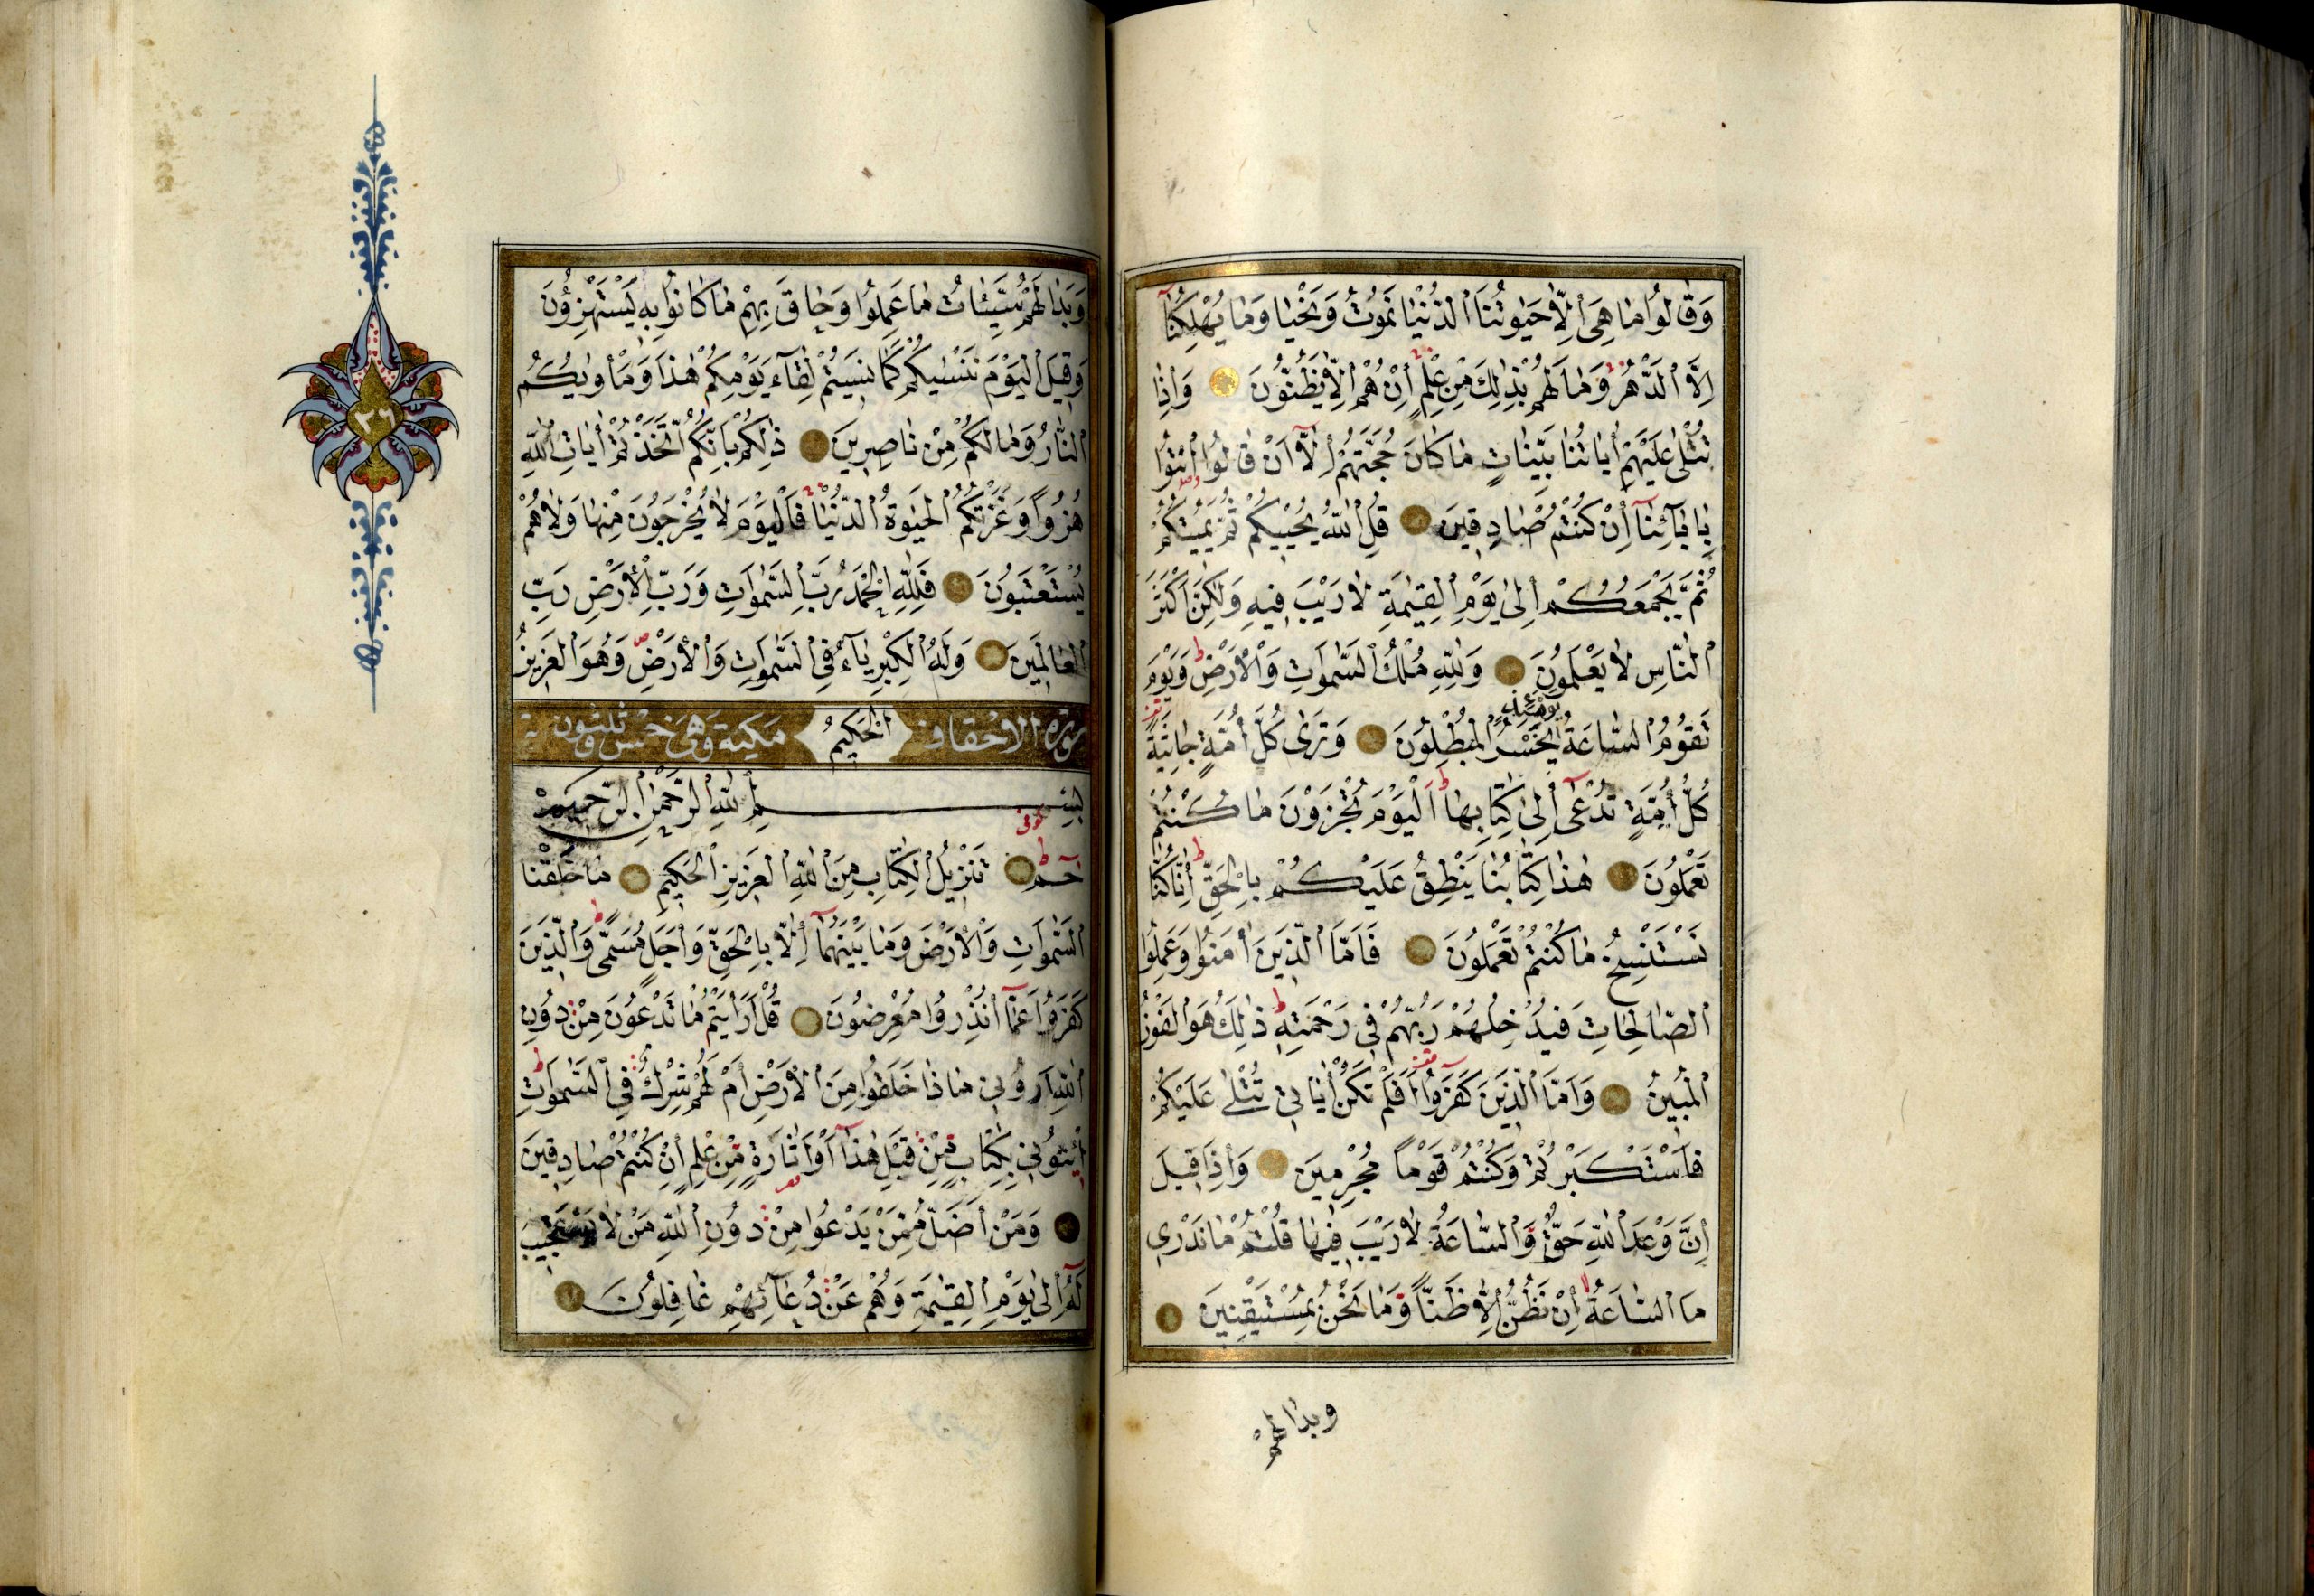 وَقَالُوا مَا هِيَ إِلَّا حَيٰوتُنَا الدُّنْيَا نَمُوتُ وَنَحْيَا وَمَا يُهْلِكُنَا
اِلَّا الدَّهْرُ وَمَا لَهُمْ بِذٰلِكَ مِنْ عِلْمٍ اِنْ هُمْ اِلَّا يَظُنُّونَ وَاِذَا
تُتْلٰى عَلَيْهِمْ اٰيَاتُنَا بَيِّنَاتٍ مَا كَانَ حُجَّتَهُمْ اِلَّا اَنْ قَالُوا ائْتُوا
بِاٰبَآئِنَا اِنْ كُنْتُمْ صَادِقِينَ قُلِ اللّٰهُ يُحْيِيكُمْ ثُمَّ يُمِيتُكُمْ
ثُمَّ يَجْمَعُكُمْ اِلٰى يَوْمِ الْقِيٰمَةِ لَا رَيْبَ فِيهِ وَلٰكِنَّ اَكْثَرَ
النَّاسِ لَا يَعْلَمُونَ وَلِلّٰهِ مُلْكُ السَّمٰوَاتِ وَالْاَرْضِ ط وَيَوْمَ
تَقُومُ السَّاعَةُ يَوْمَئِذٍ يَخْسَرُ الْمُبْطِلُونَ وَتَرٰى كُلَّ اُمَّةٍ جَاثِيَةً
كُلُّ اُمَّةٍ تُدْعٰى اِلٰى كِتَابِهَا ط اَلْيَوْمَ تُجْزَوْنَ مَا كُنْتُمْ
تَعْمَلُونَ هٰذَا كِتَابُنَا يَنْطِقُ عَلَيْكُمْ بِالْحَقِّ ط اِنَّا كُنَّا
نَسْتَنْسِخُ مَا كُنْتُمْ تَعْمَلُونَ فَاَمَّا الَّذِينَ اٰمَنُوا وَعَمِلُوا
الصَّالِحَاتِ فَيُدْخِلُهُمْ رَبُّهُمْ فِي رَحْمَتِهِ ط ذٰلِكَ هُوَ الْفَوْزُ
الْمُبِينُ وَاَمَّا الَّذِينَ كَفَرُوا اَفَلَمْ تَكُنْ اٰيَاتِي تُتْلٰى عَلَيْكُمْ
فَاسْتَكْبَرْتُمْ وَكُنْتُمْ قَوْمًا مُجْرِمِينَ وَاِذَا قِيلَ
اِنَّ وَعْدَ اللّٰهِ حَقٌّ وَالسَّاعَةُ لَا رَيْبَ فِيهَا قُلْتُمْ مَا نَدْرِي
مَا السَّاعَةُ لا اِنْ نَظُنُّ اِلَّا ظَنًّا وَمَا نَحْنُ بِمُسْتَيْقِنِينَ
وبدا لهم
وَبَدَا لَهُمْ سَيِّئَاتُ مَا عَمِلُوا وَحَاقَ بِهِمْ مَا كَانُوا بِهِ يَسْتَهْزِؤُنَ
وَقِيلَ الْيَوْمَ نَنْسٰيكُمْ كَمَا نَسِيتُمْ لِقَآءَ يَوْمِكُمْ هٰذَا وَمَأْوٰيكُمُ
النَّارُ وَمَا لَكُمْ مِنْ نَاصِرِينَ ذٰلِكُمْ بِاَنَّكُمُ اتَّخَذْتُمْ اٰيَاتِ اللّٰهِ
هُزُوًا وَغَرَّتْكُمُ الْحَيٰوةُ الدُّنْيَا فَالْيَوْمَ لَا يُخْرَجُونَ مِنْهَا وَلَا هُمْ
يُسْتَعْتَبُونَ فَلِلّٰهِ الْحَمْدُ رَبِّ السَّمٰوَاتِ وَرَبِّ الْاَرْضِ رَبِّ
الْعَالَمِينَ وَلَهُ الْكِبْرِيَآءُ فِي السَّمٰوَاتِ وَالْاَرْضِ ص وَهُوَ الْعَزِيزُ
سورة الاحقاف الْحَكِيمُ مكية وهى خمس وثلثون اية
بِسْمِ اللّٰهِ الرَّحْمٰنِ الرَّحِيمِ
كوفى
حٰمٓ ط تَنْزِيلُ الْكِتَابِ مِنَ اللّٰهِ الْعَزِيزِ الْحَكِيمِ مَا خَلَقْنَا
السَّمٰوَاتِ وَالْاَرْضَ وَمَا بَيْنَهُمَا اِلَّا بِالْحَقِّ وَاَجَلٍ مُسَمًّى ط وَالَّذِينَ
كَفَرُوا عَمَّا اُنْذِرُوا مُعْرِضُونَ قُلْ اَرَاَيْتُمْ مَا تَدْعُونَ مِنْ دُونِ
اللّٰهِ اَرُونِي مَاذَا خَلَقُوا مِنَ الْاَرْضِ اَمْ لَهُمْ شِرْكٌ فِي السَّمٰوَاتِ ط
اِيْتُونِي بِكِتَابٍ مِنْ قَبْلِ هٰذَا اَوْ اَثَارَةٍ مِنْ عِلْمٍ اِنْ كُنْتُمْ صَادِقِينَ
٢٦
وَمَنْ اَضَلُّ مِمَّنْ يَدْعُوا مِنْ دُونِ اللّٰهِ مَنْ لَا يَسْتَجِيبُ
لَهُ اِلٰى يَوْمِ الْقِيٰمَةِ وَهُمْ عَنْ دُعَآئِهِمْ غَافِلُونَ